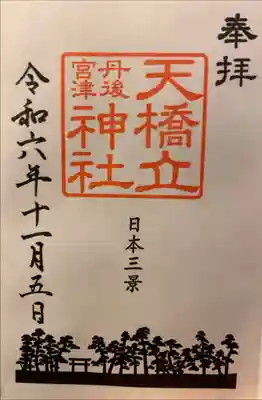 奉拝
天橋立
神社
丹後
宮津
日本三景
令和六年十一月五日